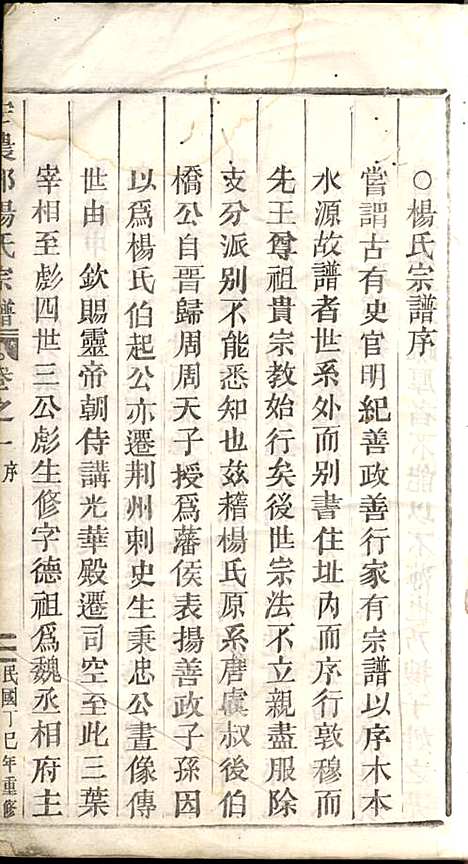 ○楊氏宗譜序
嘗謂古有史官明紀善政善行家有宗譜以序木本
水源故譜者世系外而别書住址內而序行敦穆而
先王尊祖貴宗教始行矣後世宗法不立親盡服除
支分派别不能悉知也玆稽楊氏原系唐虞叔後伯
橋公自晋歸周周天子授爲藩侯表揚善政子孫因
以爲楊氏伯起公亦遷荆州刺史生秉忠公晝像傳
世由 欽賜靈帝朝侍講光華殿遷司空至此三葉
宰相至彪四世三公彪生修字德祖爲魏丞相府主
農郡楊氏宗譜 卷之一 序 二 民國丁巳年重修